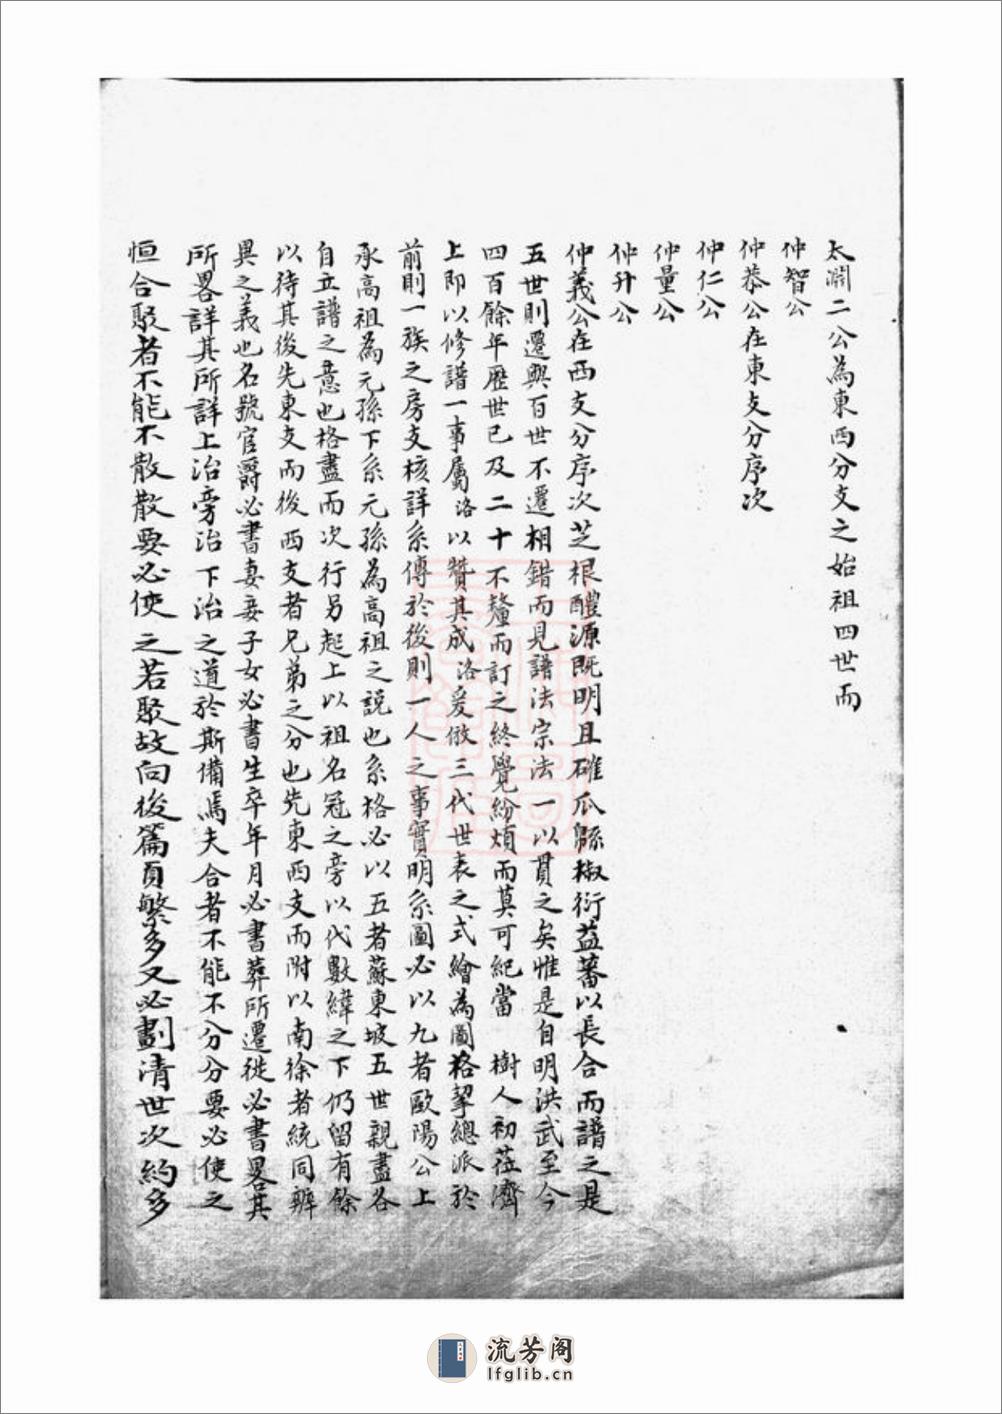 太淵二公為東西分支之始祖四世而
仲智公
仲恭公在東支分序次
仲仁公
仲量公
仲升公
仲義公在西支分序次芝根醴源既明且確瓜緜椒衍益蕃以長合而譜之是
五世則遷與百世不遷相錯而見譜法宗法一以貫之矣惟是自明洪武至今
四百餘年歷世已及二十不釐而訂之終覺紛煩而莫可紀當 樹人初蒞濟
上即以修譜一事屬洛以贊其成洛爰倣三代世表之式繪為圖格挈總派於
前則一族之房支核詳系傳於後則一人之事實明系圖必以九者歐陽公上
承高祖為元孫下系元孫為高祖之説也系格必以五者蘇東坡五世親盡各
自立譜之意也格盡而次行另起上以祖名冠之旁以代數緯之下仍留有餘
以待其後先東支而後西支者兄弟之分也先東西支而附以南徐者統同辨
異之義也名號官爵必書妻妾子女必書生卒年月必書葬所遷徙必書畧其
所畧詳其所詳上治旁治下治之道於斯備焉夫合者不能不分分要必使之
恒合聚者不能不散散要必使之若聚故向後篇頁繁多又必劃清世次約多
流芳阁
lfglib.cn